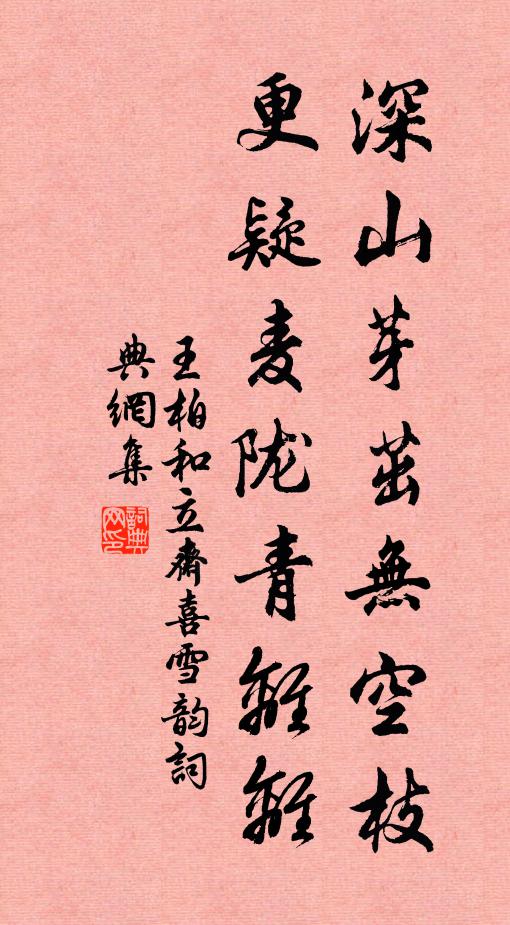 深山芽茁無空枝
更疑麦陇青離離
王柏和立齋喜雪韵詞
典網集
詞典網印